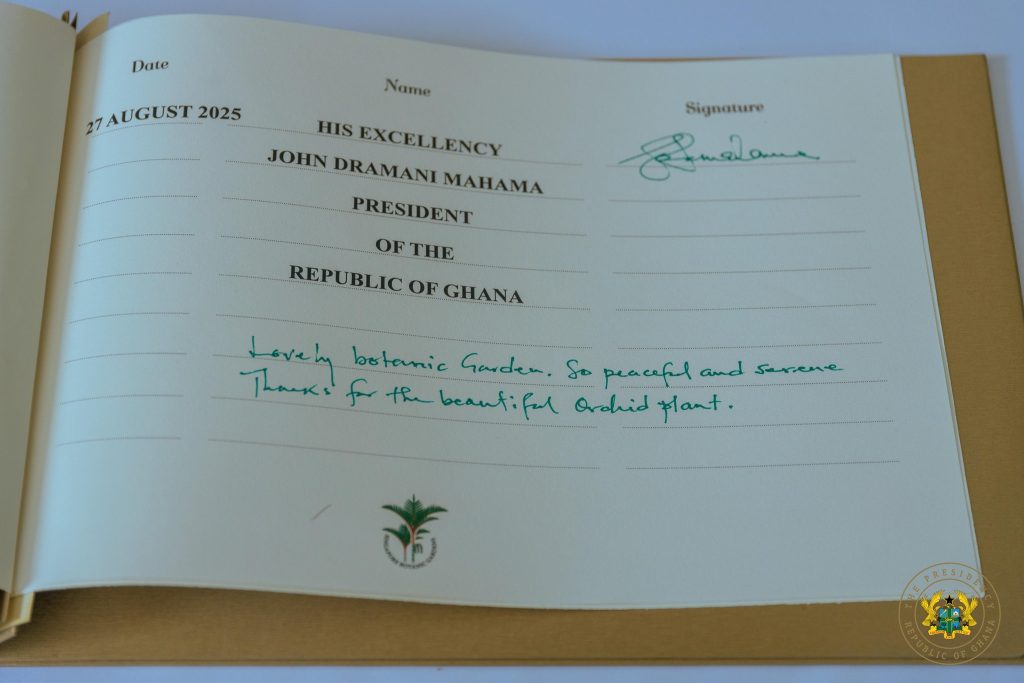 Date Name Signature
27 AUGUST 2025
HIS EXCELLENCY
JOHN DRAMANI MAHAMA
PRESIDENT
OF THE
REPUBLIC OF GHANA
Lovely botanic Garden. So peaceful and serene
Thanks for the beautiful Orchid plant.
SINGAPORE BOTANIC GARDENS
THE PRESIDENCY
REPUBLIC OF GHANA